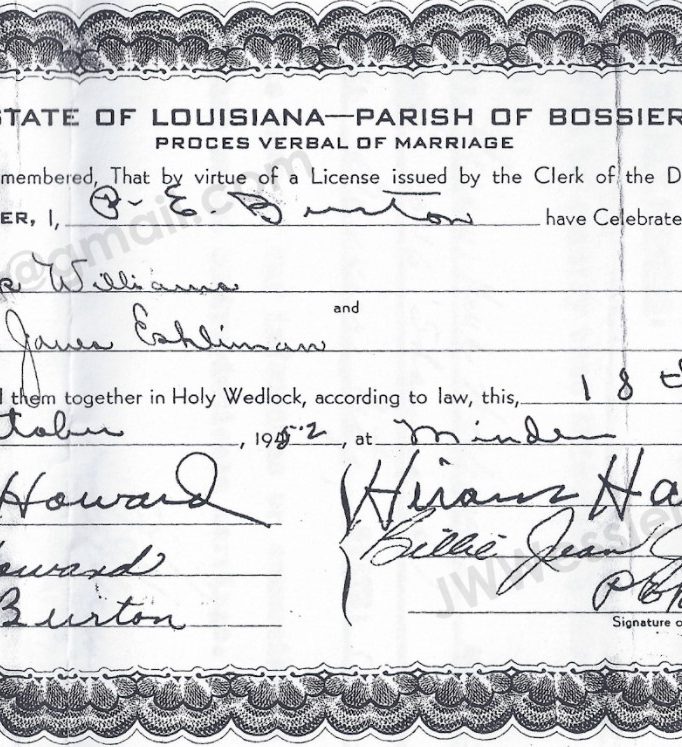 STATE OF LOUISIANA—PARISH OF BOSSIER
PROCES VERBAL OF MARRIAGE
membered, That by virtue of a License issued by the Clerk of the D
ER, I, P. E. Burton have Celebrate
Williams
and
Jones Eshliman
them together in Holy Wedlock, according to law, this, 18
tober, 1952, at Minden
Howard Hiram Ha
oward Billie Jean
Burton
Signature o
@gmail.com
JWWessler